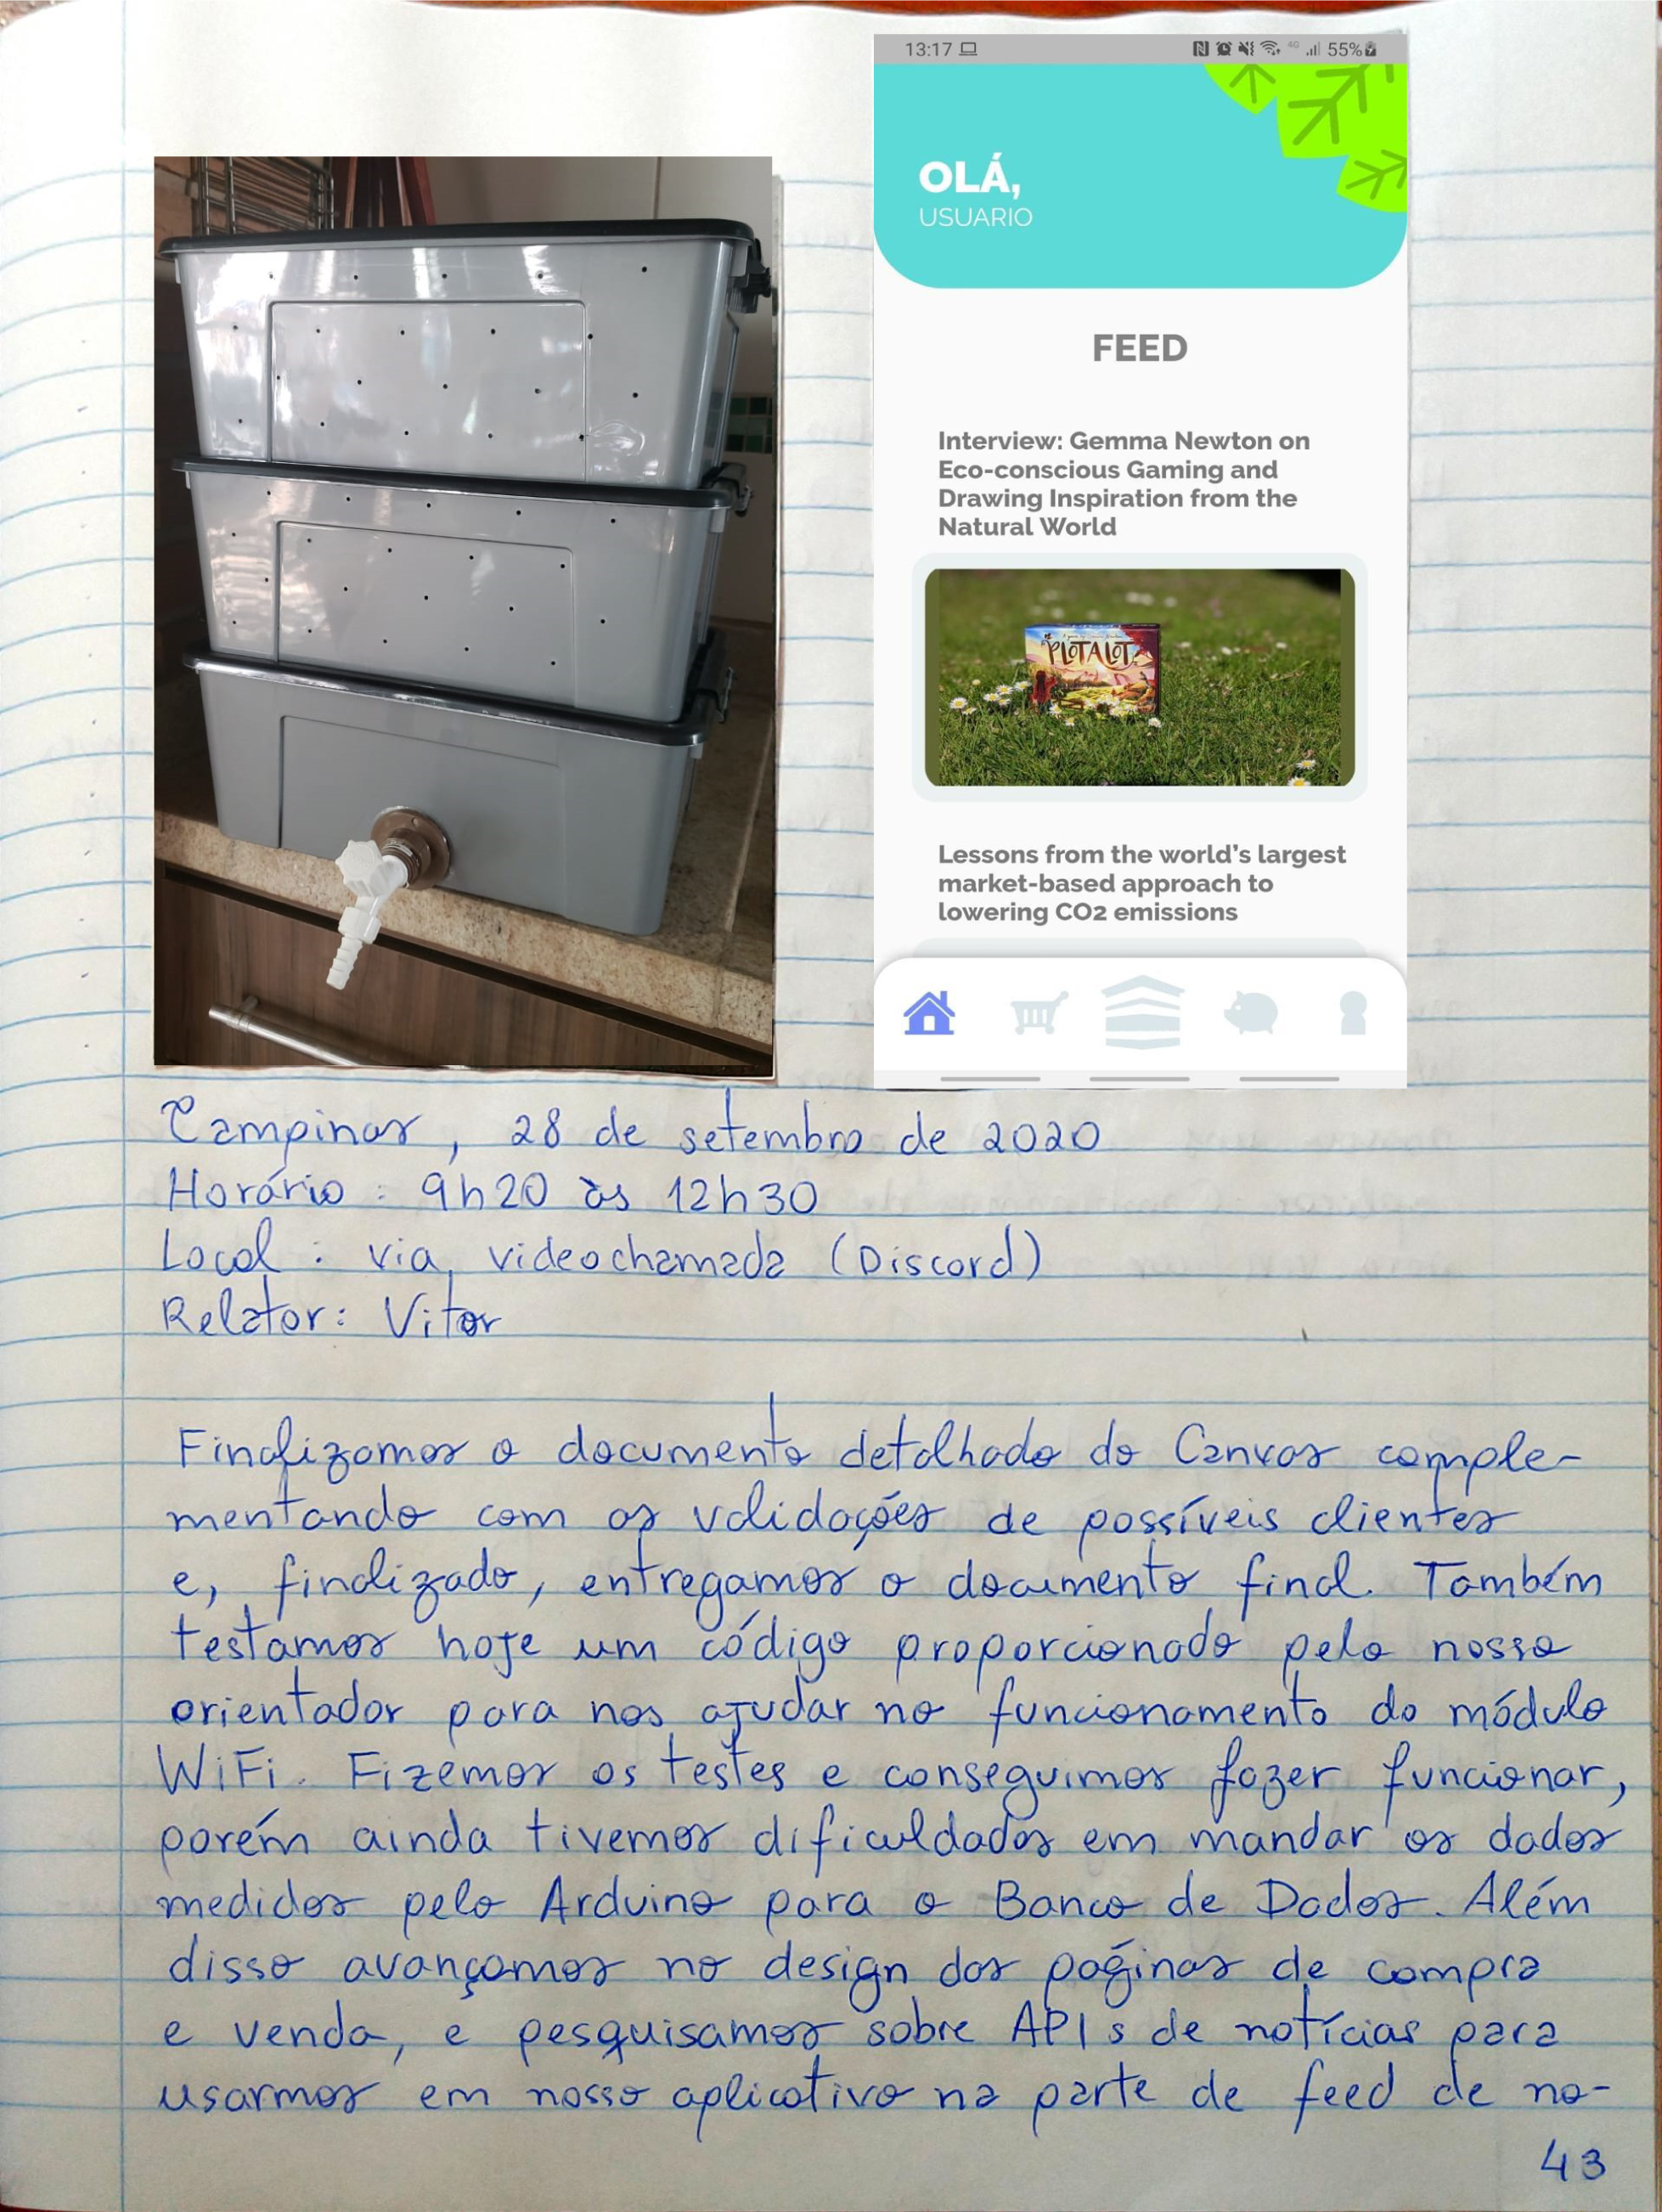 13:17
4G
55%
OLÁ,
USUARIO
FEED
Interview: Gemma Newton on
Eco-conscious Gaming and
Drawing Inspiration from the
Natural World
PLOTALOT
Lessons from the world's largest
market-based approach to
lowering CO2 emissions
Campinas, 28 de setembro de 2020
Horário: 9h20 às 12h30
Local: via videochamada (Discord)
Relator: Vitor
Finalizamos o documento detalhado do Canvas comple-
mentando com as validações de possíveis clientes
e, finalizado, entregamos o documento final. Também
testamos hoje um código proporcionado pelo nosso
orientador para nos ajudar no funcionamento do módulo
WiFi. Fizemos os testes e conseguimos fazer funcionar,
porém ainda tivemos dificuldades em mandar os dados
medidos pelo Arduino para o Banco de Dados. Além
disso avançamos no design das páginas de compra
e venda, e pesquisamos sobre APIs de notícias para
usarmos em nosso aplicativo na parte de feed de no-
43